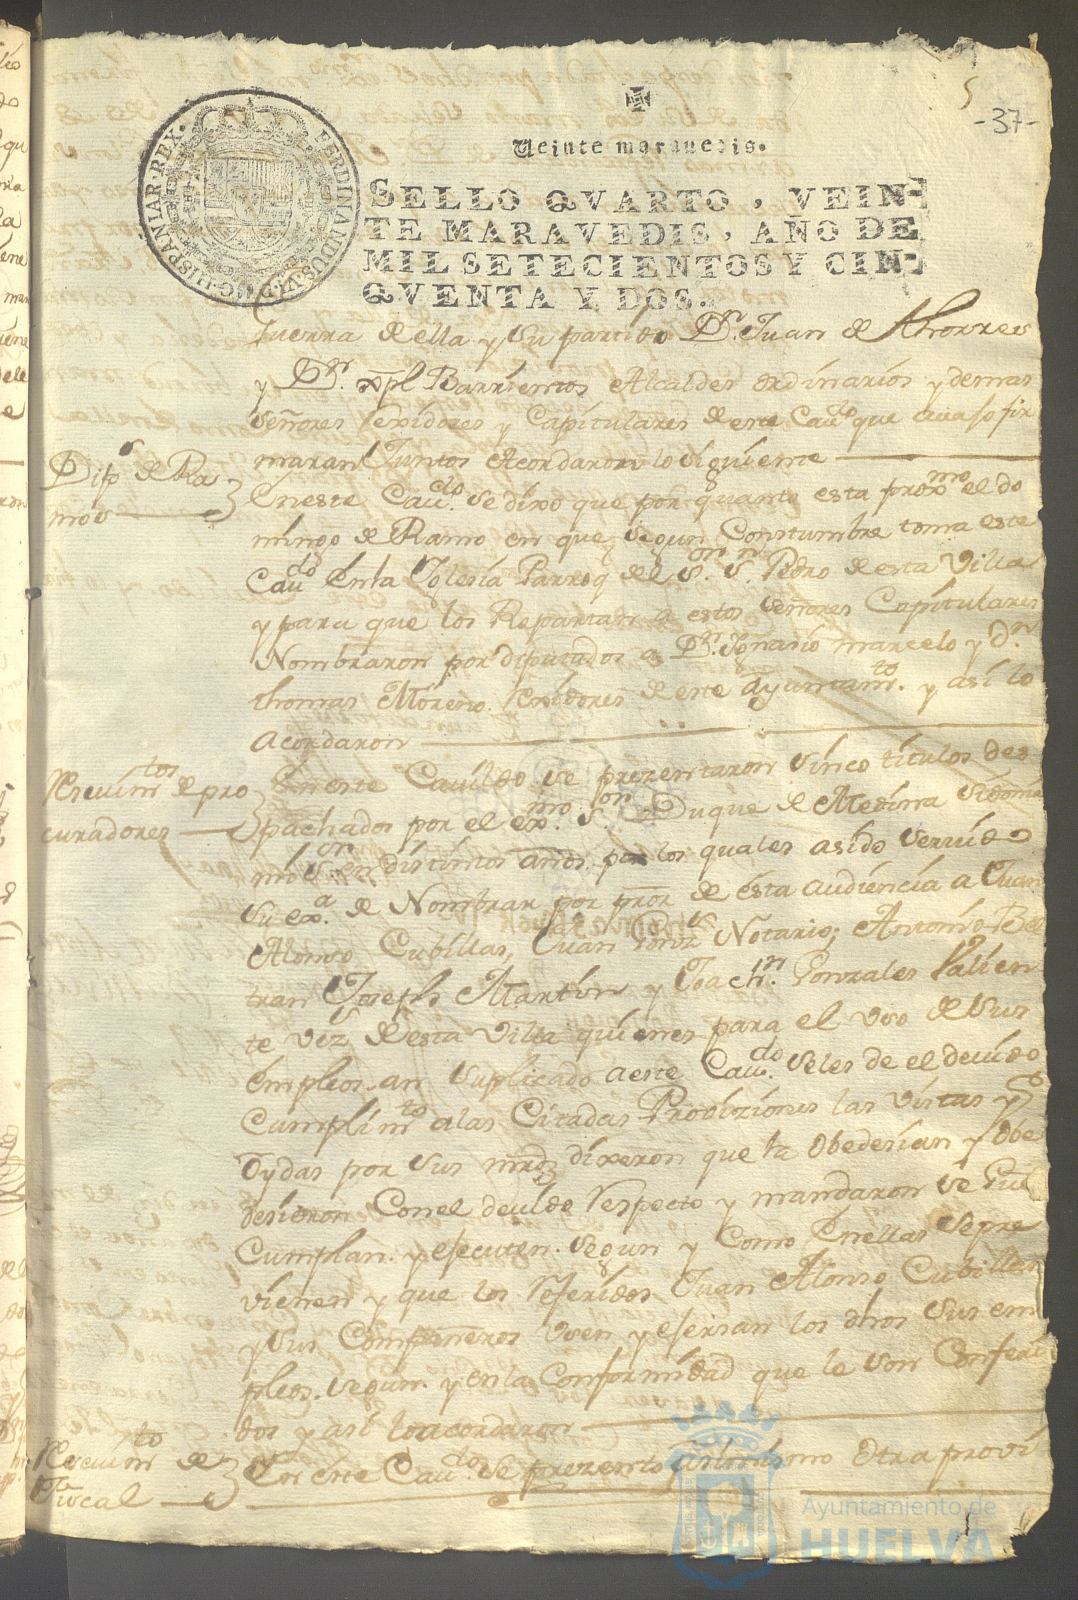 5
-37-
Veinte maravedis.
SELLO QVARTO, VEIN-
TE MARAVEDIS, AÑO DE
MIL SETECIENTOS Y CIN-
QVENTA Y DOS.
FERDINANDUS.VI.D.G.HISPANIAR.REX.
Guerra de ella y su partido Dn. Juan de Thorres
y Dn. xpl Barrientos Alcaldes ordinarios y demas
señores rexidores y Capitulares de este Cavdo que avaso fir
maran Juntos Acordaron lo siguiente
Dipos de Ra
mos
En este Cavdo. se dixo que por quanto esta proxmo el do
mingo de Ramos en que segun Constumbre toma este
Cavdo en la Iglesia Parroq del Sor. Sn. Pedro de esta Villa
y para que los Repartan a estos señores Capitulares
Nombraron por diputados a Dn. Ignasio marcelo y Dn
thomas Moreno rexidores de este Ayuntamto. y asi lo
acordaron
Resevimtos de pro
curadores
En este Cavildo se prezentaron sinco titulos des
pachados por el exmo. Sor. Duque de Medina sidonia
mi Sor. en distintos años por los quales asido servido
su exa. de Nombrar por pror de esta audiencia a Juan
Alonso Cubillas, Juan Gonzs Notario; Antonio Bel
tran Joseph Martin y Joachn. Gonzales Valien
te vez. de esta villa quienes para el uso de sus
empleos an suplicado a este Cavdo. seles de el devido
Cumplimto alas Citadas Provisiones las vistas y
Oydas por sus mrdz dixeron que la Obedesian y Obe
desieron Con el devido respecto y mandaron se Gu
Cumplan y esecuten segun y Como en ellas se pre
vienen y que los referidos Juan Alonso Cubillas
y sus Compañeros usen y esersan los dhos sus em
pleos segun y en la Conformidad que le son Conferi
dos y asi lo acordaron
Resevimto de
Fiscal
En este Cavdo se prezento asimismo Otra provi
Ayuntamiento de
HUELVA